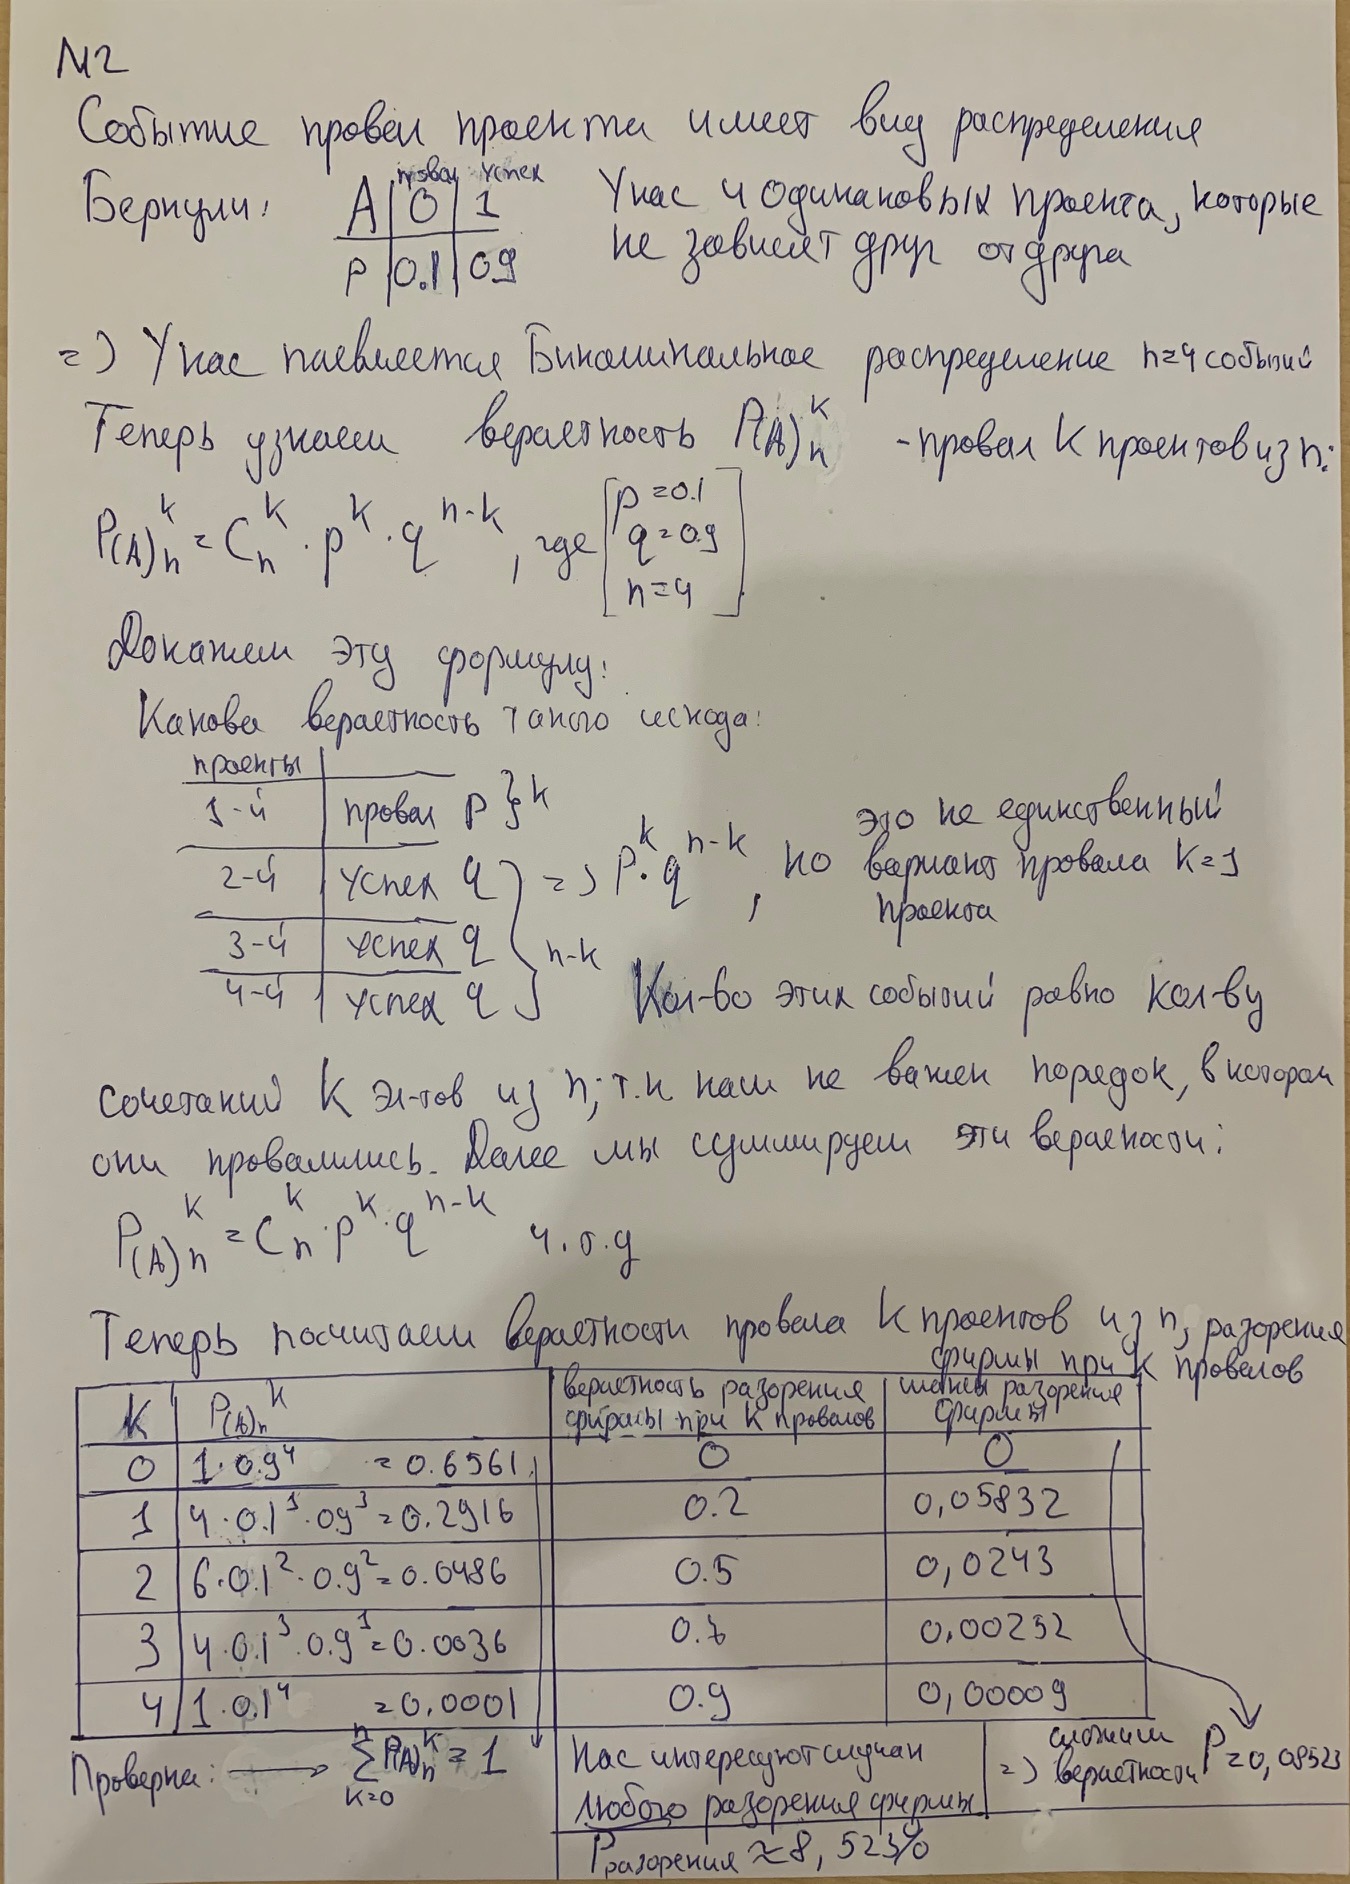 №2
Событие провал проекта имеет вид распределения
Бернули:
провал успех
A | 0 | 1
P | 0.1 | 0.9
У нас 4 одинаковых проекта, которые
не зависят друг от друга
=> У нас появляется Биноминальное распределение n=4 событий
Теперь узнаем вероятность P(A)ₙᵏ - провал k проектов из n:
P(A)ₙᵏ = Cₙᵏ · pᵏ · qⁿ⁻ᵏ, где [p=0.1
q=0.9
n=4]
Докажем эту формулу:
Какова вероятность такого исхода:
проекты
1-й | провал p } k
2-й | успех q
3-й | успех q
4-й | успех q
} n-k
=> pᵏ · qⁿ⁻ᵏ, но
это не единственный
вариант провала k=1
проекта
Кол-во этих событий равно кол-ву
сочетаний k эл-тов из n; т.к нам не важен порядок, в котором
они провалились. Далее мы суммируем эти вероятности:
P(A)ₙᵏ = Cₙᵏ · pᵏ · qⁿ⁻ᵏ ч.т.д
Теперь посчитаем вероятности провала k проектов из n, разорения
фирмы при k провалов
k | P(A)ₙᵏ | вероятность разорения фирмы при k провалов | шансы разорения фирмы
0 | 1·0.9⁴ = 0.6561 | 0 | 0
1 | 4·0.1¹·0.9³ = 0.2916 | 0.2 | 0,05832
2 | 6·0.1²·0.9² = 0.0486 | 0.5 | 0,0243
3 | 4·0.1³·0.9¹ = 0.0036 | 0.7 | 0,00252
4 | 1·0.1⁴ = 0,0001 | 0.9 | 0,00009
Проверка: → ∑ P(A)ₙᵏ = 1
n
k=0
Нас интересуют случаи
любого разорения фирмы
=> сложим
вероятности P=0,08523
P разорения ≈ 8,523%